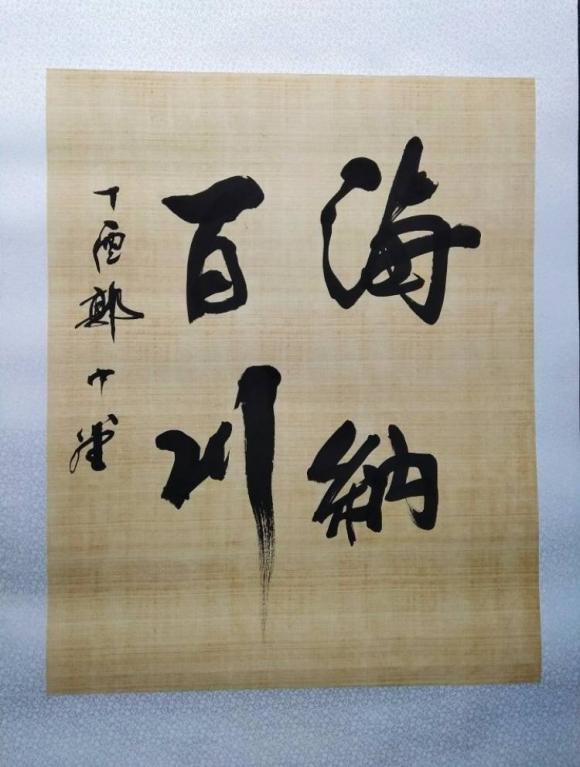 海納
百川
丁酉鄭中